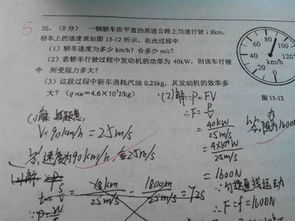 5
25. (8分) 一辆轿车在平直的高速公路上匀速行驶18km.
轿车上的速度表如图 15-12 所示. 在此过程中
(1) 轿车速度为多少 km/h? 合多少 m/s?
(2) 若轿车行驶过程中发动机的功率为 40kW, 则该车行驶
中 所受阻力多大?
(3) 这段过程中轿车消耗汽油 0.25kg, 其发动机的效率多
大? (q =4.6×10⁷J/kg)
km/h
图 15-12
V=90km/h=25m/s
答:速度为90km/h,合25m/s
(2)解:∵P=FV
∴F=
40kW
25m/s
=
4×10⁴W
25m/s
=1600N
∴F=f=1600N
18km
25m/s
=
1800m
25m/s